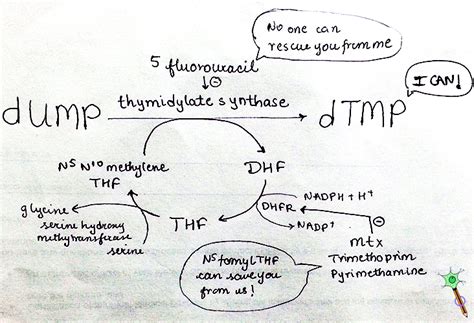 No one can
rescue you from me
5 fluorouracil
⊖
I CAN!
dUMP
thymidylate synthase
dTMP
N5 N10 methylene
THF
DHF
NADPH + H+
DHFR
⊖
NADP+
glycine
serine hydroxy
methyltransferase
serine
THF
mtx
Trimethoprim
Pyrimethamine
N5 fomyl THF
can save you
from us!